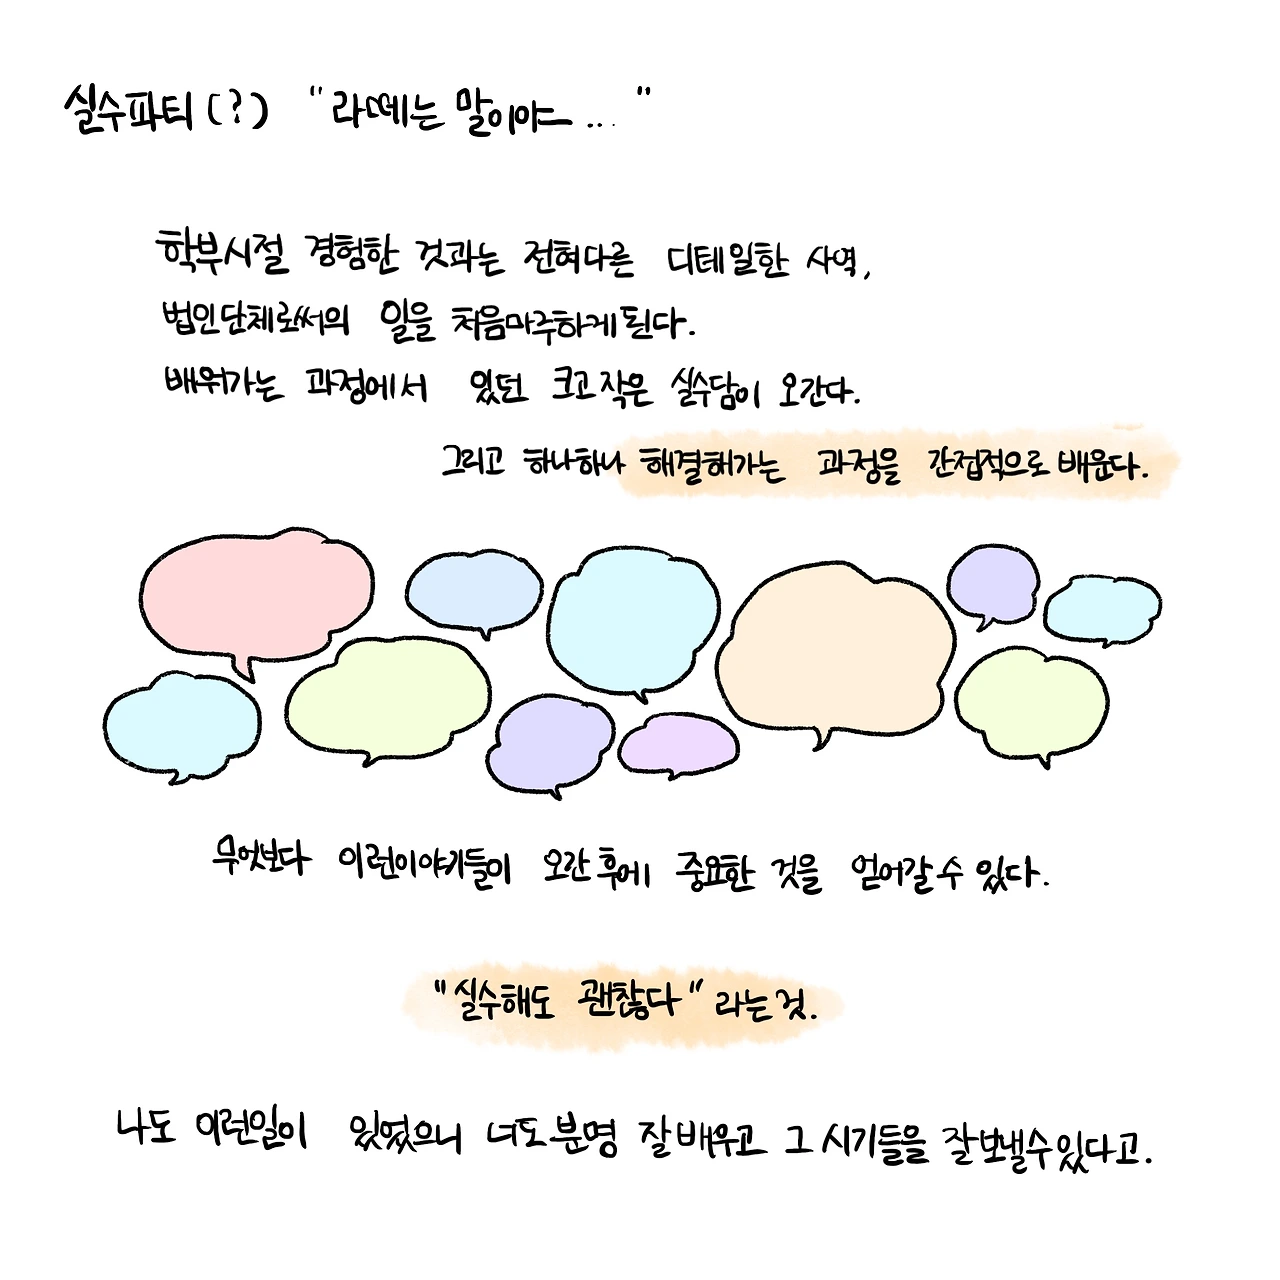 실수파티(?) "라떼는 말이야ㅡ..."
학부시절 경험한 것과는 전혀다른 디테일한 사역,
법인단체로써의 일을 처음마주하게된다.
배워가는 과정에서 있던 크고작은 실수담이 오간다.
그리고 하나하나 해결해가는 과정을 간접적으로 배운다.
무엇보다 이런이야기들이 오간후에 중요한 것을 얻어갈수 있다.
"실수해도 괜찮다" 라는것.
나도 이런일이 있었으니 너도분명 잘배우고 그시기들을 잘보낼수있다고.